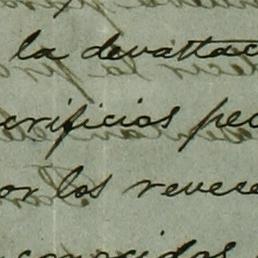 la devattac
crificios pec
or los revese
conocidos